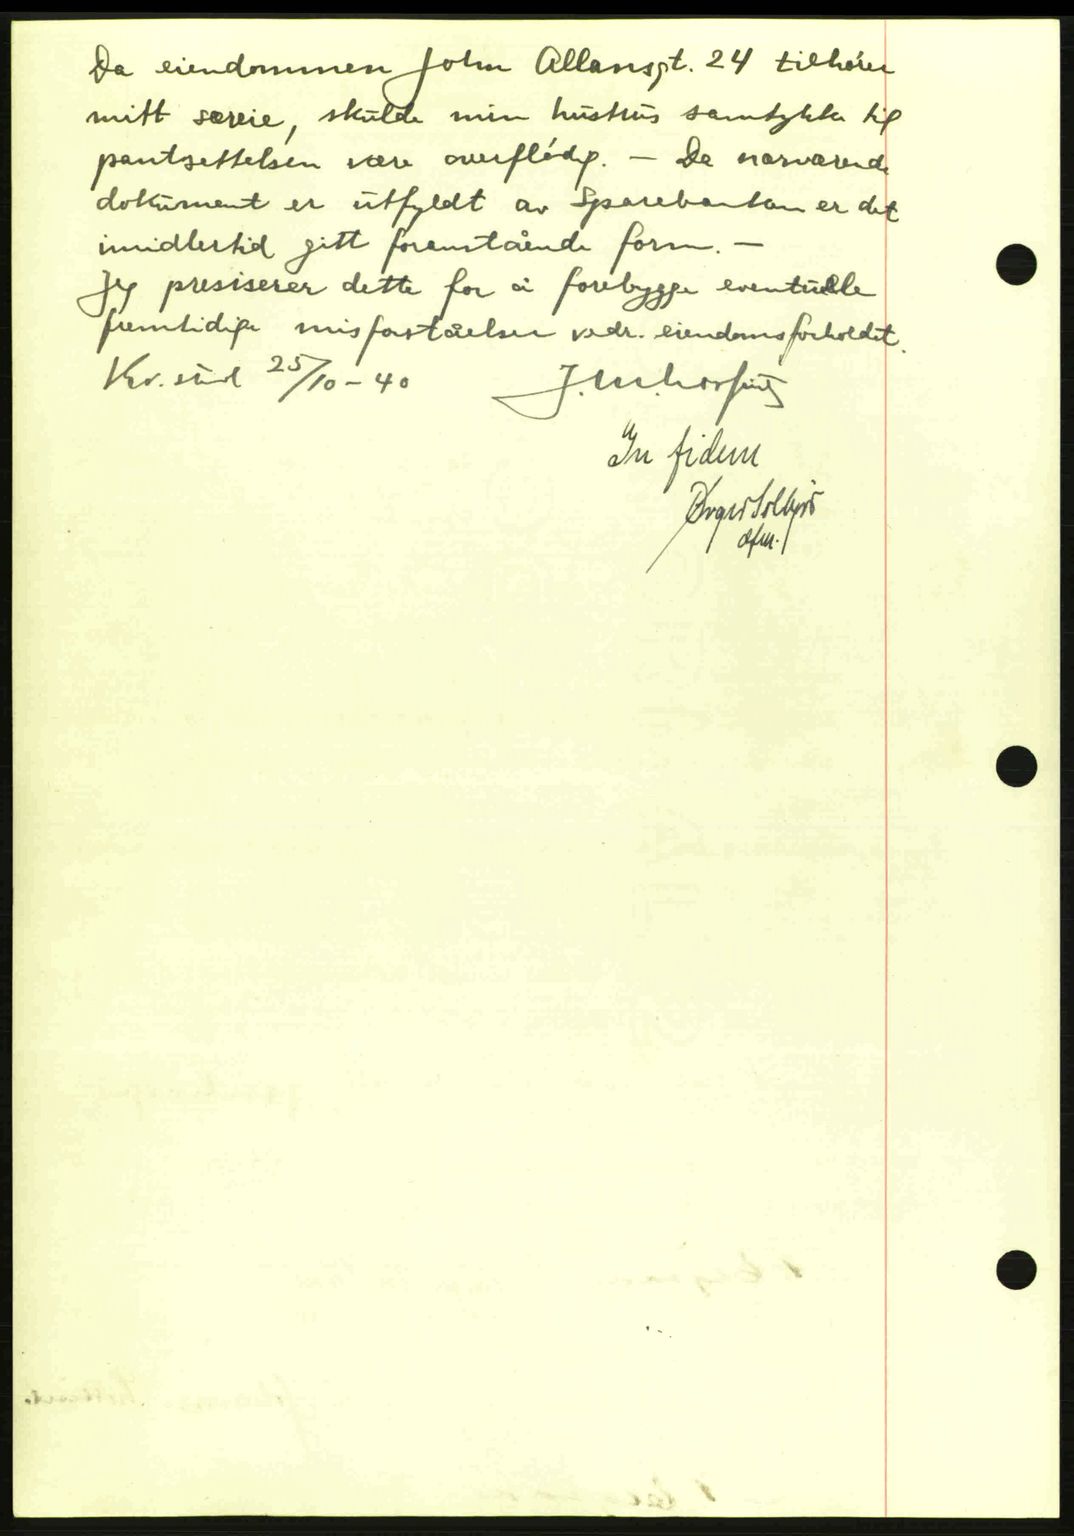 Da eiendommen John Allansgt. 24 tilhører
mitt særeie, skulde min hustrus samtykke til
pantsettelsen være overflødig. – Da nærværende
dokument er utfyldt av Sparebanken er det
imidlertid gitt foranstående form. –
Jeg presiserer dette for å forebygge eventuelle
fremtidige misforståelser vedr. eiendomsforholdet.
Kr.sund 25/10 – 40
In fidem